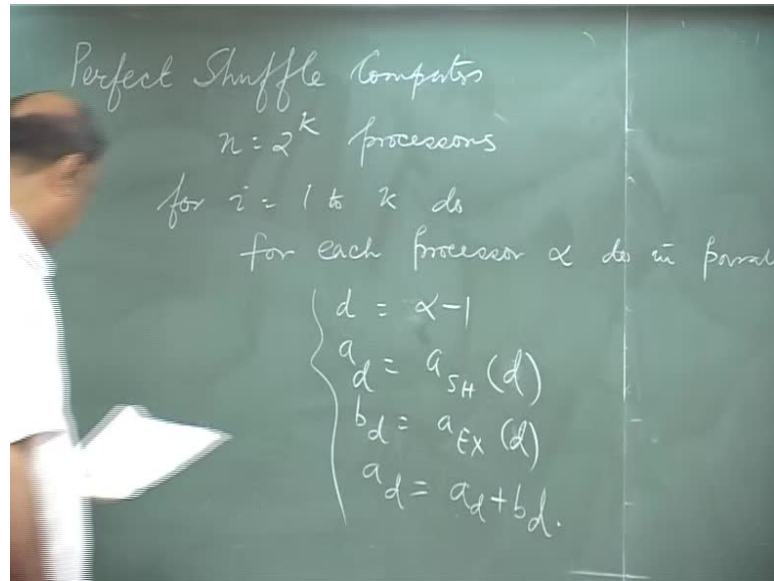 Perfect Shuffle Computers
n = 2^k processors
for i = 1 to k do
for each processor α do in paral
d = α-1
a_d = a_SH (d)
b_d = a_EX (d)
a_d = a_d + b_d.